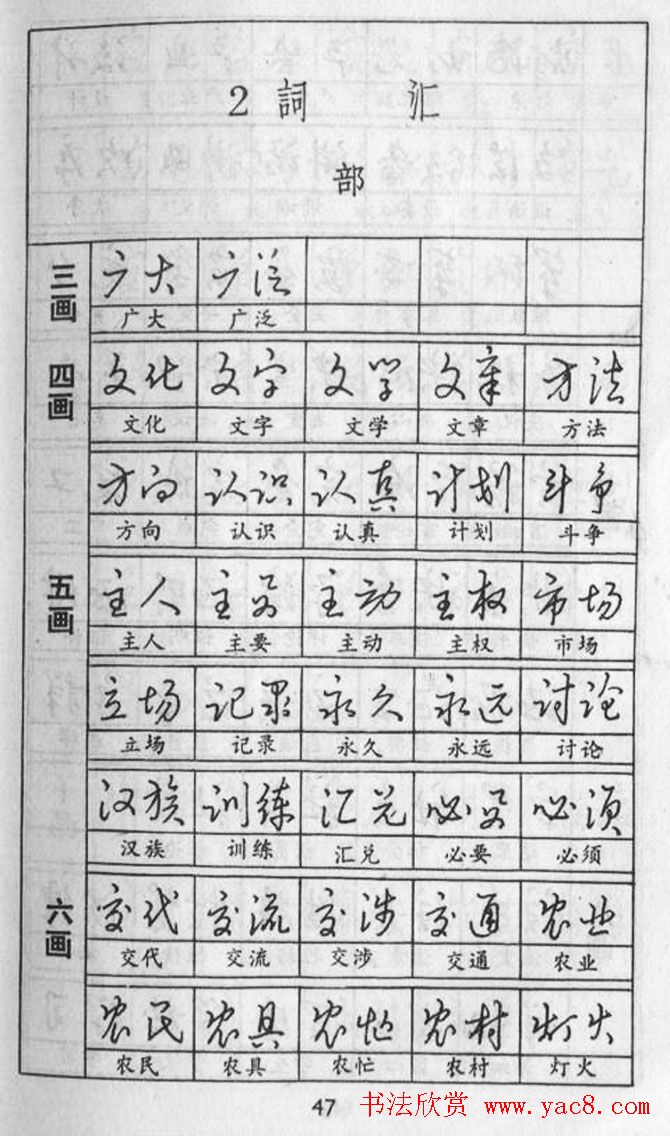 2 詞 汇
部
三画
广大 广泛
广大 广泛
四画
文化 文字 文学 文章 方法
文化 文字 文学 文章 方法
方向 认识 认真 计划 斗争
方向 认识 认真 计划 斗争
五画
主人 主要 主动 主权 市场
主人 主要 主动 主权 市场
立场 记录 永久 永远 讨论
立场 记录 永久 永远 讨论
汉族 训练 汇兑 必要 必须
汉族 训练 汇兑 必要 必须
六画
交代 交流 交涉 交通 农业
交代 交流 交涉 交通 农业
农民 农具 农忙 农村 灯火
农民 农具 农忙 农村 灯火
47 书法欣赏 www.yac8.com